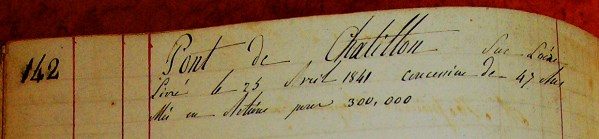 142
Pont de Chatillon Sur Loire
Livré le 25 Avril 1841 concession de 47 Ans
Mis en Actions pour 300,000